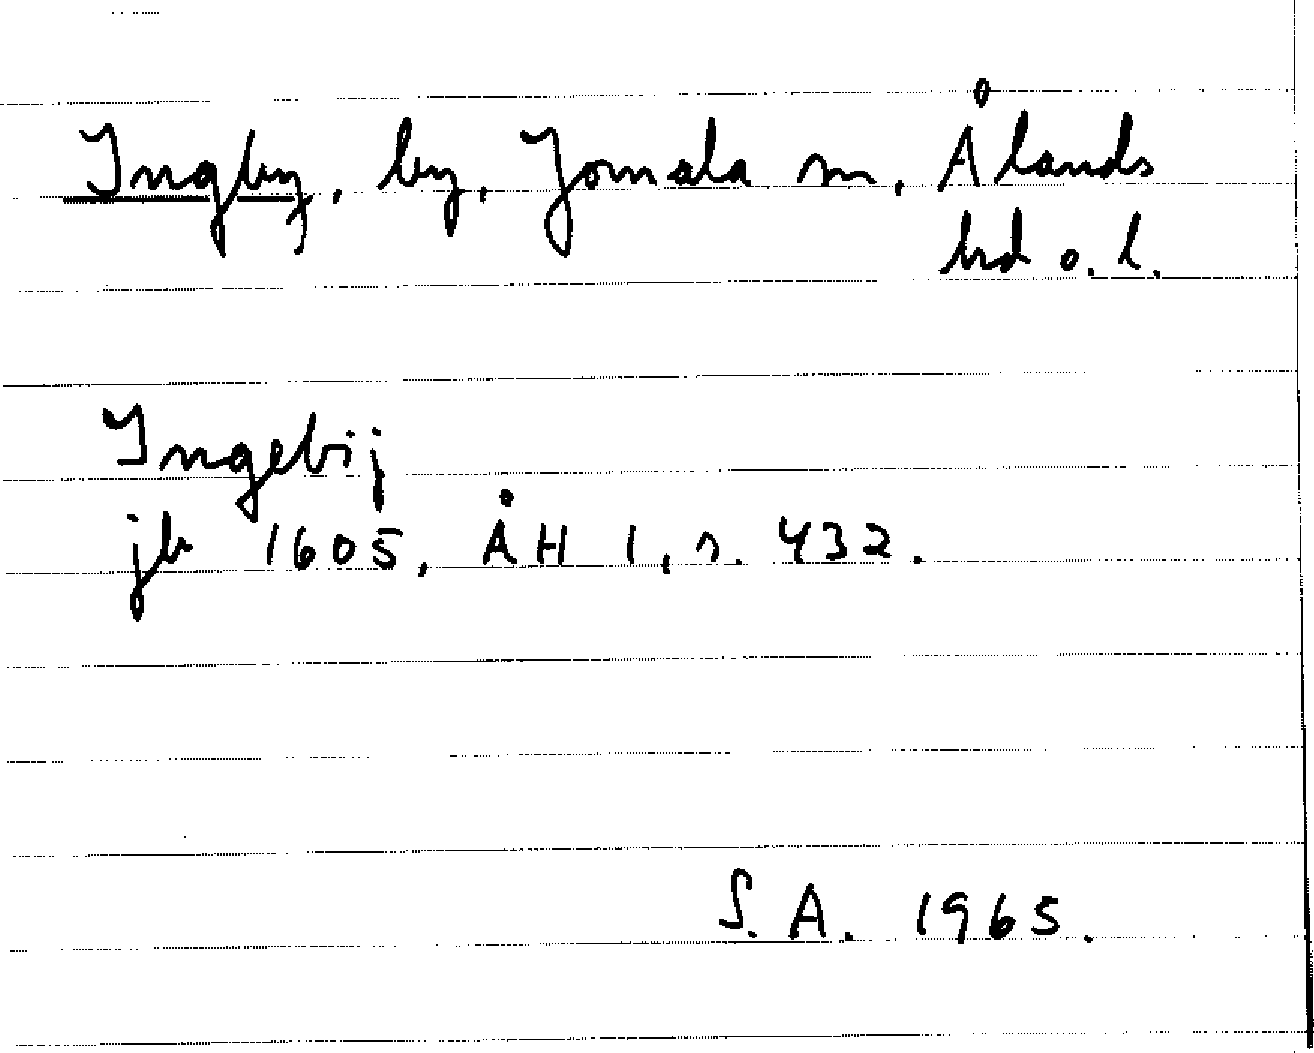 Ingby, by, Jomala sn, Ålands
hd o. l.
Ingebij
jb 1605, ÅH 1, s. 432.
S. A. 1965.